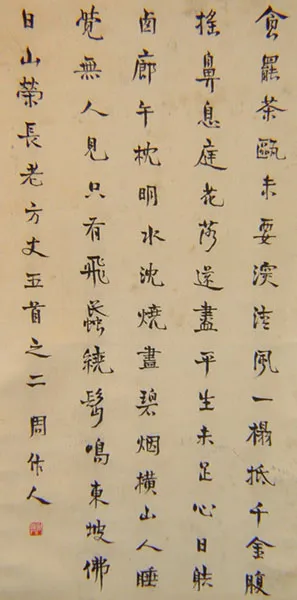 食罷茶甌未要深清風一榻抵千金腹
搖鼻息庭花落還盡平生未足心日射
回廊午枕明水沈燒盡碧烟橫山人睡
覺無人見只有飛蟁繞鬢鳴東坡佛
日山榮長老方丈五首之二 周作人